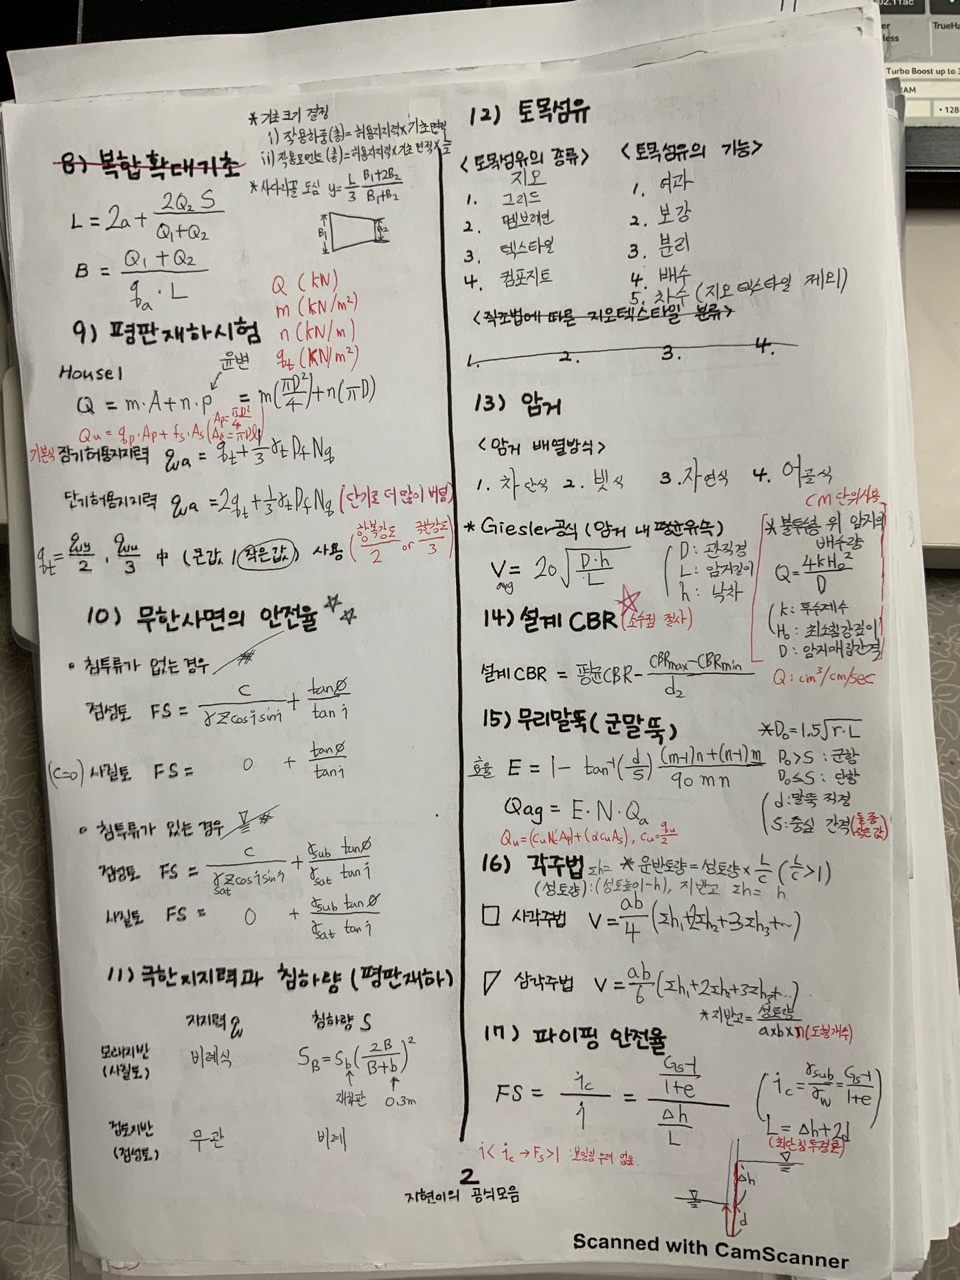 * 기초크기 결정
i) 작용하중(총)=허용지지력×기초면적
ii) 작용모멘트(총)=허용지지력×기초면적×
8) 복합확대기초
* 사다리꼴 도심 y=L/3 (B₁+2B₂)/(B₁+B₂)
B₁ B₂
L = 2a + 2Q₂S/(Q₁+Q₂)
B = (Q₁+Q₂)/(q_a·L)
Q (kN)
m (kN/m²)
n (kN/m)
q_t (kN/m²)
9) 평판재하시험
윤변
Housel
Q = m·A+n·p = m(πD²/4)+n(πD)
Qu = q_p·A_p + f_s·A_s (A_p=πD²/4 A_s=πDl)
기본식 장기허용지지력 q_a = q_t+1/3 γ_t D_f N_q
단기허용지지력 q_a = 2q_t+1/3 γ_t D_f N_q (단기로 더 많이 버팀)
q_t = q_y/2, q_u/3 中 (큰값, 작은값) 사용 (항복강도/2 or 극한강도/3)
10) 무한사면의 안전율 ☆☆
• 침투류가 없는 경우
점성토 FS = C/(γZcosi sini) + tanø/tan i
(C=0) 사질토 FS = 0 + tanø/tan i
• 침투류가 있는 경우
점성토 FS = C/(γsat Zcosi sini) + γsub tanø/γsat tan i
사질토 FS = 0 + γsub tanø/γsat tan i
11) 극한지지력과 침하량 (평판재하)
지지력 q 침하량 S
모래지반 (사질토) 비례식 S_B = S_b(2B/(B+b))²
재하판 0.3m
점토지반 (점성토) 무관 비례
12) 토목섬유
<토목섬유의 종류> <토목섬유의 기능>
지오
1. 그리드 1. 여과
2. 멤브레인 2. 보강
3. 텍스타일 3. 분리
4. 컴포지트 4. 배수
5. 차수 (지오텍스타일 제외)
<직조법에 따른 지오텍스타일 분류>
1. 2. 3. 4.
13) 암거
<암거 배열방식>
1. 차단식 2. 빗식 3. 자연식 4. 어골식
cm 단위사용
* Giesler공식 (암거 내 평균유속)
V avg = 20√(D·h/L)
D : 관직경
L : 암거길이
h : 낙차
* 불투층 위 암거의 배수량
Q = 4kH₀²/D
k : 투수계수
H₀ : 최소침강깊이
D : 암거매립간격
Q : cm³/cm/sec
14) 설계 CBR ☆ (소수점 절사)
설계 CBR = 평균CBR - (CBRmax-CBRmin)/d₂
15) 무리말뚝 (군말뚝)
* D₀ = 1.5√(r·L)
D₀>S : 군항
D₀≤S : 단항
효율 E = 1 - tan⁻¹(d/S) ((m-1)n+(n-1)m)/(90mn)
d : 말뚝 직경
S : 중심 간격 (둘 중 작은 값)
Qag = E·N·Qa
Qu = (Cu Nc Ap)+(αCu As), Cu = q_u/2
16) 각주법 Σh = * 운반토량 = 성토량 × L/C (L/C>1)
(성토량) : (성토높이-h), 지반고 Σh = h
□ 사각주법 V = ab/4 (Σh₁+2Σh₂+3Σh₃+…)
▽ 삼각주법 V = ab/6 (Σh₁+2Σh₂+3Σh₃+…)
* 지반고 = 성토량/(a×b×n) (도형개수)
17) 파이핑 안전율
FS = i_c/i = ((Gs-1)/(1+e))/(Δh/L)
(i_c = γsub/γw = (Gs-1)/(1+e)
L = Δh+2d)
(최단침투경로)
i < i_c → Fs>1 : 보일링 우려 없음.
Δh
d
2
지현이의 공식모음
Scanned with CamScanner